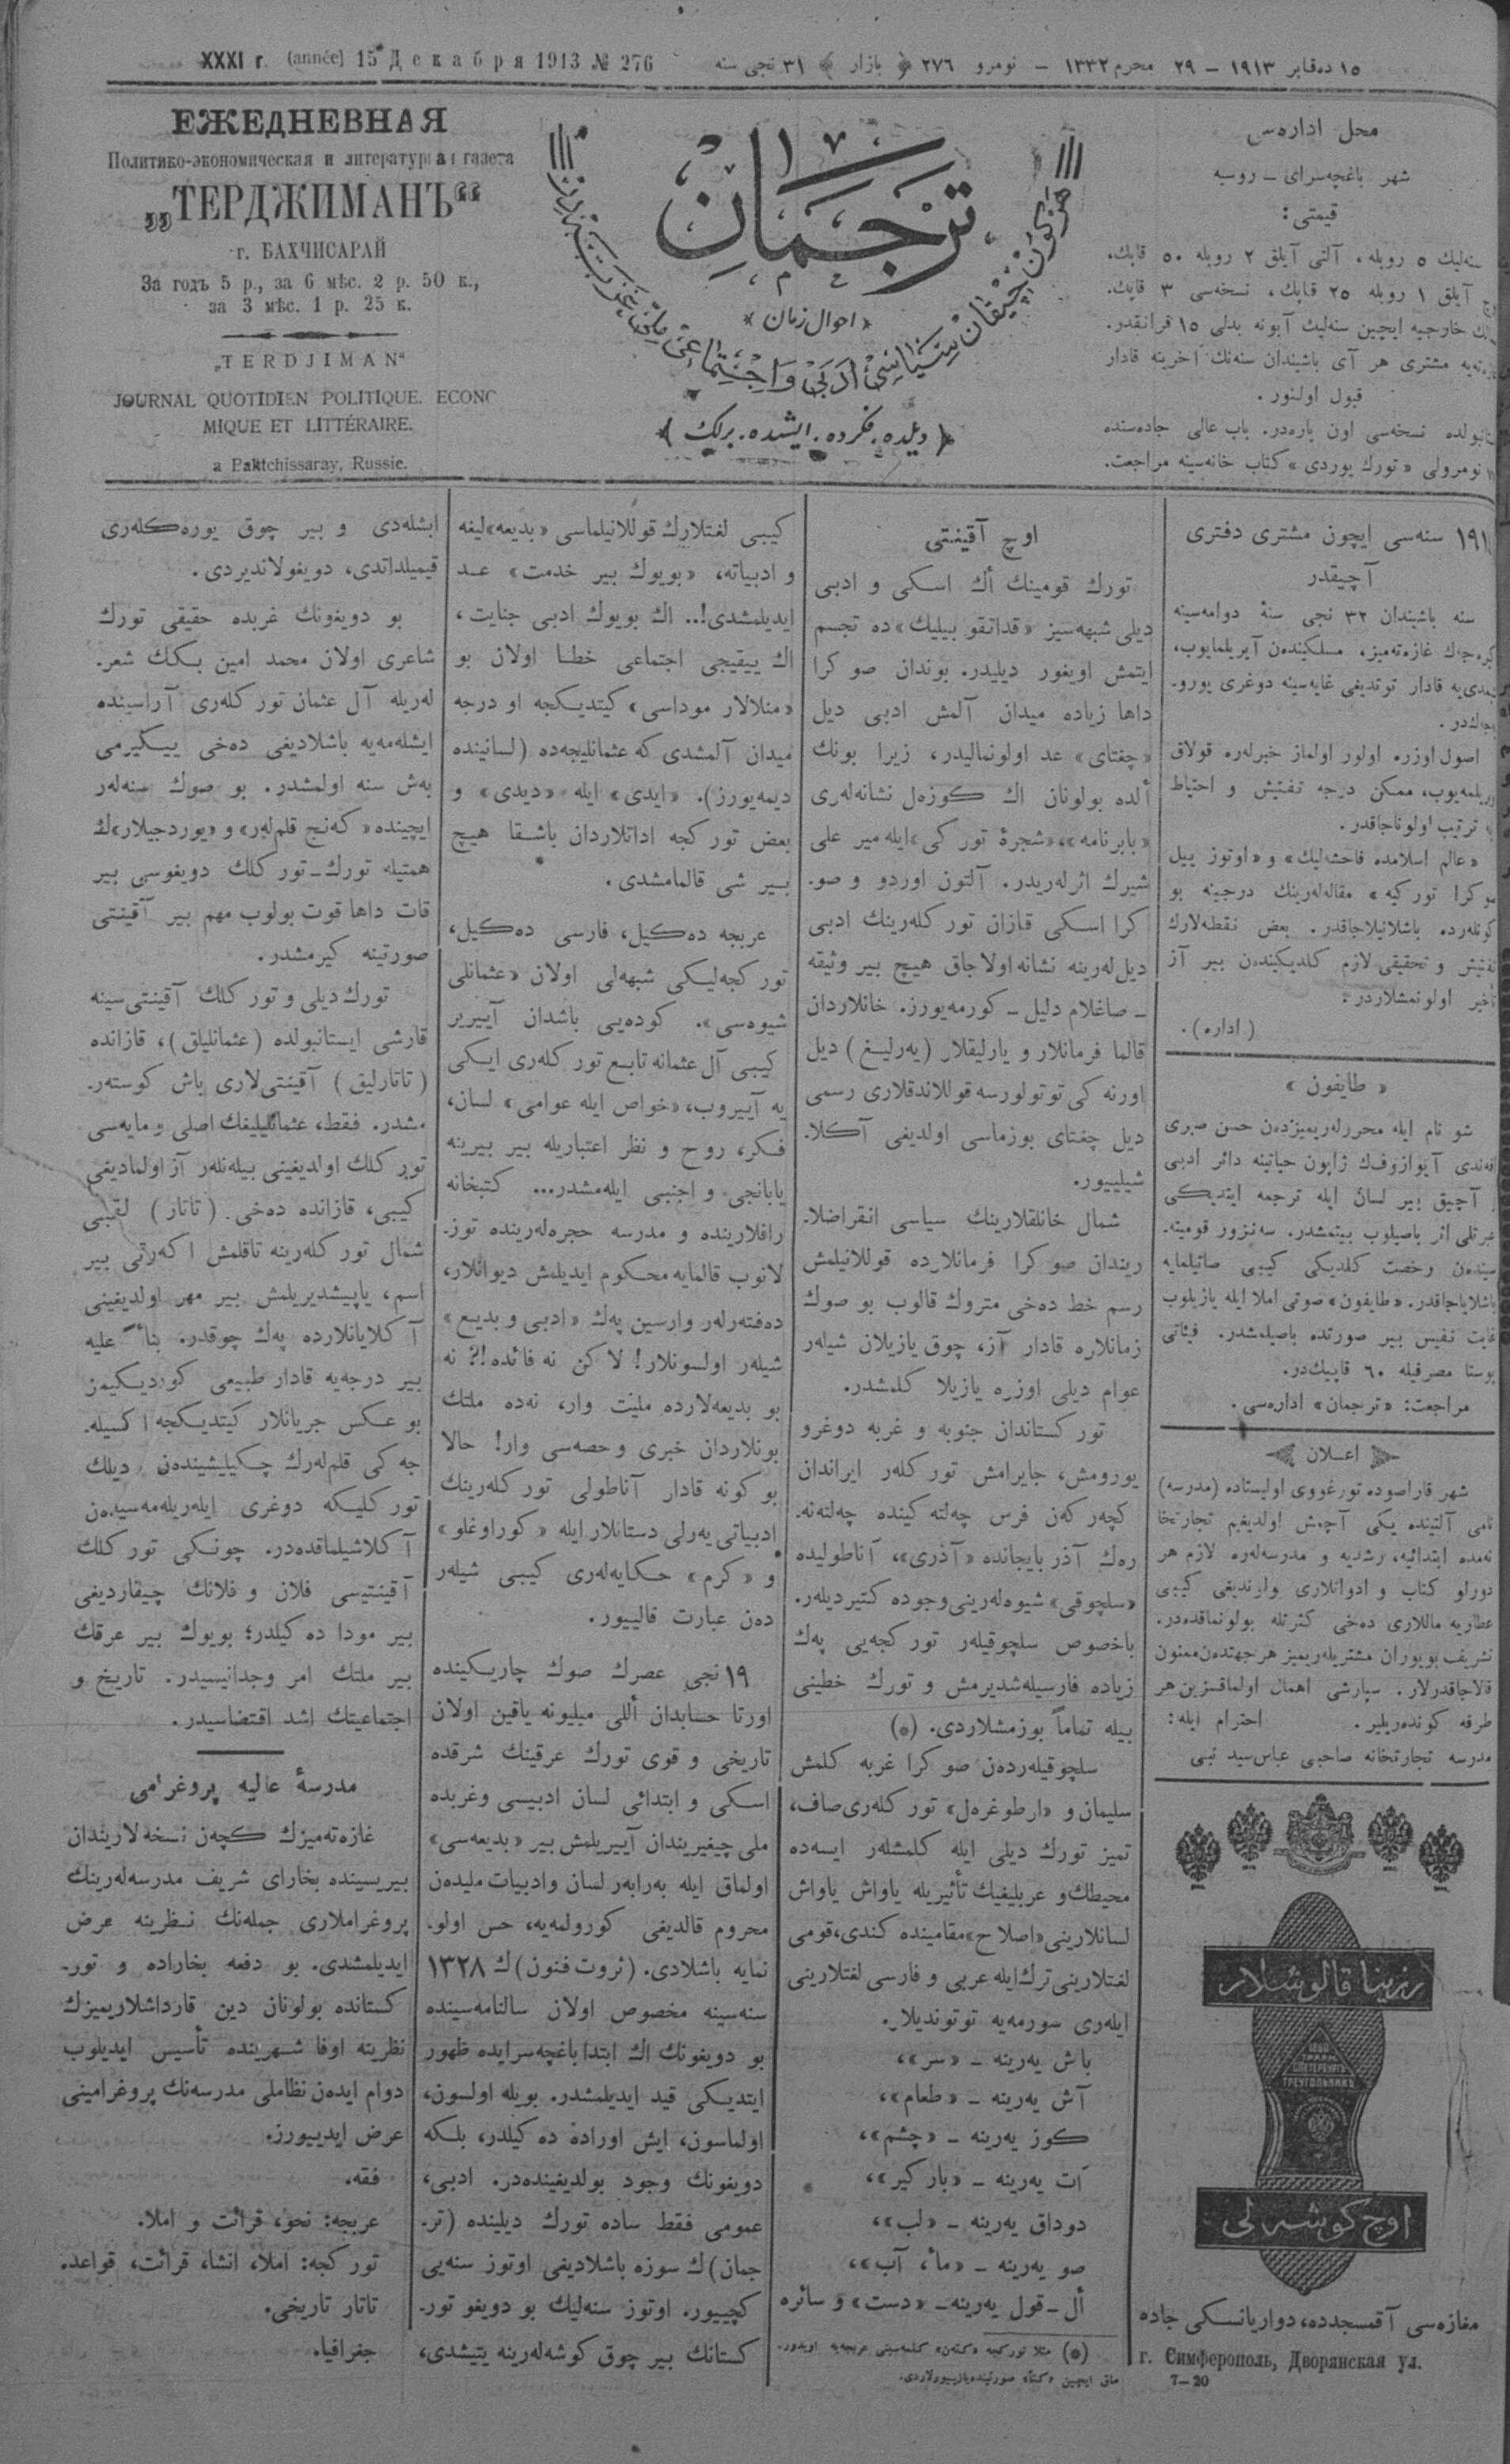 XXXI г. (année) 15 Декабря 1913 № 276
١٥ دەقابر ١٩١٣ – ٢٩ محرم ١٣٣٢ – نومرو ٢٧٦ ﴿ بازار ﴾ ٣١ نجی سنه
ЕЖЕДНЕВНАЯ
Политико-экономическая и литературная газета
„ТЕРДЖИМАНЪ“
г. БАХЧИСАРАЙ
За годъ 5 р., за 6 мѣс. 2 р. 50 к.,
за 3 мѣс. 1 р. 25 к.
„TERDJIMAN“
JOURNAL QUOTIDIEN POLITIQUE. ECONO
MIQUE ET LITTÉRAIRE.
a Baktchissaray, Russie.
ترجمان
﴿ احوال زمان ﴾
﴿ دیلده. فکرده. ایشده. برلك ﴾
محل ادارەسی
شهر باغچەسرای – روسیه
قیمتی:
سنەلیك ٥ روبله، آلتی آیلق ٢ روبله ٥٠ قاپك،
آیلق ١ روبله ٢٥ قاپك، نسخەسی ٣ قاپك.
خارجیه ایچین سنەلیك آبونه بدلی ١٥ فرانقدر.
مشتری هر آی باشیندان سنەنك آخرینه قادار
قبول اولنور.
نسخەسی اون پارەدر. باب عالی جادەسنده
نومرولی «تورك یوردی» کتاب خانەسینه مراجعت.
سنەسی ایچون مشتری دفتری
آچیقدر
سنه باشیندان ٣٢ نجی سنۀ دوامەسینه
غازەتەمیز، مسلکیندەن آیریلمایوب،
قادار توتدیغی غایەسینه دوغری یورو-
جاكدر.
اصول اوزره اولور اولماز خبرلەره قولاق
ویریلمەیوب، ممکن درجه تفتیش و احتیاط
ترتیب اولوناجاقدر.
«عالم اسلامده فاحشەلیك» و «اوتوز ییل
صوکرا تورکیه» مقالەلەرینك درجینه بو
کونلەرده باشلانیلاجاقدر. بعض نقطەلارك
تفتیش و تحقیقی لازم کلدیکیندەن بیر آز
تأخیر اولونمشلاردر.
(اداره).
« طایفون »
شو نام ایله محررلەریمیزدەن حسن صبری
افەندی آیوازوفك ژاپون حیاتینه دائر ادبی
آچیق بیر لسان ایله ترجمه ایتدیکی
عبرتلی اثر باصیلوب بیتمشدر. سەنزور قومیتە-
سیندەن رخصت کلدیکی کیبی صاتیلمایه
باشلایاجاقدر. «طایفون» صوتی املا ایله یازیلوب
غایت نفیس بیر صورتده باصیلمشدر. فیئاتی
پوستا مصرفیله ٦٠ قاپیكدر.
مراجعت: «ترجمان» ادارەسی.
اعلان
شهر قاراصوده تورغووی اولیستاده (مدرسه)
نامی آلتینده یکی آچمش اولدیغم تجارتخا-
نەمده ابتدائیه، رشدیه و مدرسەلەره لازم هر
دورلو کتاب و ادواتلاری واردیغی کیبی
عطاریه ماللاری دەخی کثرتله بولونماقدەدر.
تشریف بویوران مشتریلەریمیز هر جهتدەن ممنون
قالاجاقدرلار. سپارشی اهمال اولماقسزین هر
طرفه کوندەریلیر. احترام ایله:
مدرسه تجارتخانه صاحبی عباس سید نبی
رزینا قالوشلار
ТРЕУГОЛЬНИКЪ
اوچ کوشەلی
مغازەسی آقمسجدده، دواریانسکی جاده
г. Симферополь, Дворянская ул.
7—20
اوچ آقینتی
تورك قومینك اك اسکی و ادبی
دیلی شبهەسیز «قداتقو بیلیك»ده تجسم
ایتمش اویغور دیلیدر. بوندان صوکرا
داها زیاده میدان آلمش ادبی دیل
«چغتای» عد اولونمالیدر، زیرا بونك
ألده بولونان اك کوزەل نشانەلەری
«بابرنامه»، «شجرۀ تورکی» ایله میر علی
شیرك اثرلەریدر. آلتون اوردو و صو-
کرا اسکی قازان تورکلەرینك ادبی
دیللەرینه نشانه اولاجاق هیچ بیر وثیقه
– صاغلام دلیل – کورمەیورز. خانلاردان
قالما فرمانلار و یارلیقلار (یەرلیغ) دیل
اورنەکی توتولورسه قوللاندقلاری رسمی
دیل چغتای بوزماسی اولدیغی آکلا-
شیلییور.
شمال خانلقلارینك سیاسی انقراضلا-
ریندان صوکرا فرمانلارده قوللانیلمش
رسم خط دەخی متروك قالوب بو صوك
زمانلاره قادار آز، چوق یازیلان شیلەر
عوام دیلی اوزره یازیلا کلمشدر.
تورکستاندان جنوبه و غربه دوغرو
یورومش، جایرامش تورکلەر ایراندان
کچەرکەن فرس چەلتەکینده چەلتەنە-
رەك آذربایجانده «آذری»، آناطولیده
«سلچوقی» شیوەلەرینی وجوده کتیردیلەر.
باخصوص سلچوقیلەر تورکجەیی پەك
زیاده فارسیلەشدیرمش و تورك خطینی
بیله تماماً بوزمشلاردی. (*)
سلچوقیلەردەن صوکرا غربه کلمش
سلیمان و «ارطوغرەل» تورکلەری صاف،
تمیز تورك دیلی ایله کلمشلەر ایسەده
محیطك و عربلیفیك تأثیریله یاواش یاواش
لسانلارینی «اصلاح» مقامینده کندی، قومی
لغتلارینی ترك ایله عربی و فارسی لغتلارینی
ایلەری سورمەیه توتوندیلار.
باش یەرینه – «سر»،
آش یەرینه – «طعام»،
کوز یەرینه – «چشم»،
آت یەرینه – «بارکیر»،
دوداق یەرینه – «لب»،
صو یەرینه – «مأ، آب»،
أل – قول یەرینه – «دست» و سائره
(*) مثلا تورکجه «کتەن» کلمەسینی عربجەیه اویدور-
ماق ایچین «کتاً» صورتینده یازییورلاردی.
کیبی لغتلارك قوللانیلماسی «بدیعه»لیغه
و ادبیاته، «بویوك بیر خدمت» عد
ایدیلمشدی!.. اك بویوك ادبی جنایت،
اك ییقیجی اجتماعی خطا اولان بو
«منلالار موداسی» کیتدیکجه او درجه
میدان آلمشدی که عثمانلیجەده (لسانینده
دیمەیورز). «ایدی» ایله «دیدی» و
بعض تورکجه اداتلاردان باشقا هیچ
بیر شی قالمامشدی.
عربجه دەکیل، فارسی دەکیل،
تورکجەلیکی شبهەلی اولان «عثمانلی
شیوەسی». کودەیی باشدان آییریر
کیبی آل عثمانه تابع تورکلەری ایکی
یه آییروب، «خواص ایله عوامی» لسان،
فکر، روح و نظر اعتباریله بیر بیرینه
یابانجی و اجنبی ایلەمشدر... کتبخانه
رافلارینده و مدرسه حجرەلەرینده توز-
لانوب قالمایه محکوم ایدیلمش دیوانلار،
دەفتەرلەر وارسین پەك «ادبی و بدیع»
شیلەر اولسونلار! لاکن نه فائده!؟ نه
بو بدیعەلارده ملیت وار، نەده ملتك
بونلاردان خبری و حصەسی وار! حالا
بوکونه قادار آناطولی تورکلەرینك
ادبیاتی یەرلی دستانلار ایله «کوراوغلو»
و «کرم» حکایەلەری کیبی شیلەر
دەن عبارت قالییور.
١٩ نجی عصرك صوك چاریکینده
اورتا حسابدان أللی میلیونه یاقین اولان
تاریخی و قوی تورك عرقینك شرقده
اسکی و ابتدائی لسان ادبیسی و غربده
ملی چیغیریندان آییریلمش بیر «بدیعەسی»
اولماق ایله بەرابەر لسان و ادبیات ملیدەن
محروم قالدیغی کورولمەیه، حس اولو-
نمایه باشلادی. (ثروت فنون)ك ١٣٢٨
سنەسینه مخصوص اولان سالنامەسینده
بو دویغونك اك ابتدا باغچەسرایده ظهور
ایتدیکی قید ایدیلمشدر. بویله اولسون،
اولماسون، ایش اوراده دەکیلدر، بلکه
دویغونك وجود بولدیغیندەدر. ادبی،
عمومی فقط ساده تورك دیلینده (تر-
جمان)ك سوزه باشلادیغی اوتوز سنەیی
کچییور. اوتوز سنەلیك بو دویغو تور-
کستانك بیر چوق کوشەلەرینه یتیشدی،
ایشلەدی و بیر چوق یورەکلەری
قیمیلداتدی، دویغولاندیردی.
بو دویغونك غربده حقیقی تورك
شاعری اولان محمد امین بكك شعر-
لەریله آل عثمان تورکلەری آراسینده
ایشلەمەیه باشلادیغی دەخی ییکیرمی
بەش سنه اولمشدر. بو صوك سنەلەر
ایچینده «کەنج قلملەر» و «یوردجیلار»ك
همتیله تورك – تورکلك دویغوسی بیر
قات داها قوت بولوب مهم بیر آقینتی
صورتینه کیرمشدر.
تورك دیلی و تورکلك آقینتی سینه
قارشی ایستانبولده (عثمانلیلق)، قازانده
(تاتارلیق) آقینتیلاری باش کوستەر-
مشدر. فقط، عثمانلیلیغك اصلی و مایەسی
تورکلك اولدیغینی بیلەنلەر آز اولمادیغی
کیبی، قازانده دەخی (تاتار) لقبی
شمال تورکلەرینه تاقلمش اکەرتی بیر
اسم، یاپیشدیریلمش بیر مهر اولدیغینی
آکلایانلارده پەك چوقدر. بنأ علیه
بیر درجەیه قادار طبیعی کوردیکیمز
بو عکس جریانلار کیتدیکجه اکسیلە-
جەکی قلملەرك چکیلیشیندەن، دیلك
تورکلیکه دوغری ایلەریلەمەسیدەن
آکلاشیلماقدەدر. چونکی تورکلك
آقینتیسی فلان و فلانك چیقاردیغی
بیر مودا دەکیلدر؛ بویوك بیر عرقك
بیر ملتك امر وجدانیسیدر. تاریخ و
اجتماعیتك اشد اقتضاسیدر.
مدرسۀ عالیه پروغرامی
غازەتەمیزك کچەن نسخەلاریندان
بیریسینده بخارای شریف مدرسەلەرینك
پروغراملاری جملەنك نظرینه عرض
ایدیلمشدی. بو دفعه بخاراده و تور-
کستانده بولونان دین قارداشلاریمیزك
نظرینه اوفا شهرینده تأسیس ایدیلوب
دوام ایدەن نظاملی مدرسەنك پروغرامینی
عرض ایدییورز.
فقه،
عربجه: نحو، قرائت و املا.
تورکجه: املا، انشا، قرائت، قواعد.
تاتار تاریخی.
جغرافیا.